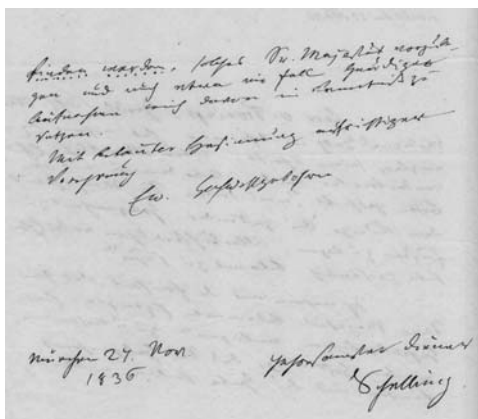 finden werden, solches Sr. Majestät vorzule-
gen und auch etwa im Fall gnädigster
Aufnahme mich davon in Kenntniß zu
setzen.
Mit Gesinnung aufrichtiger
Verehrung
Ew. Hochwohlgebohren
München 27. Nov
1836
gehorsamster Diener
Schelling